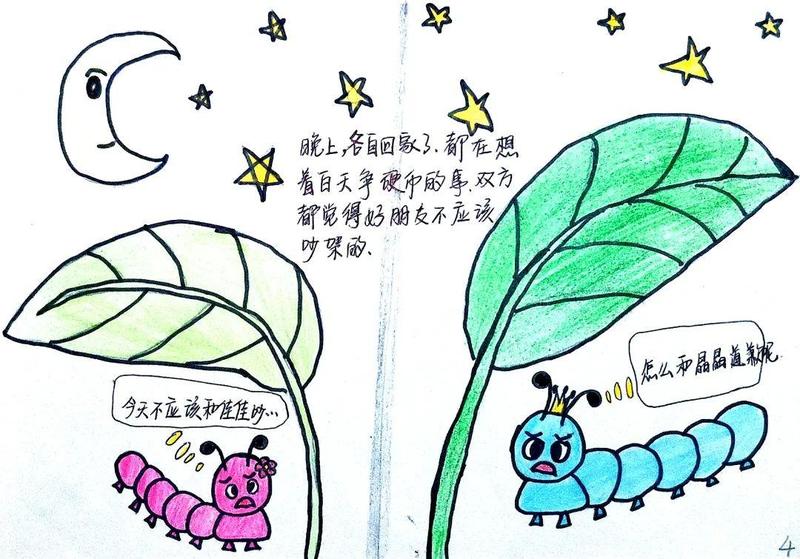 晚上，各自回家了、都在想
着白天争硬币的事、双方
都觉得好朋友不应该
吵架的、
今天不应该和佳佳吵…
怎么和晶晶道歉呢
4